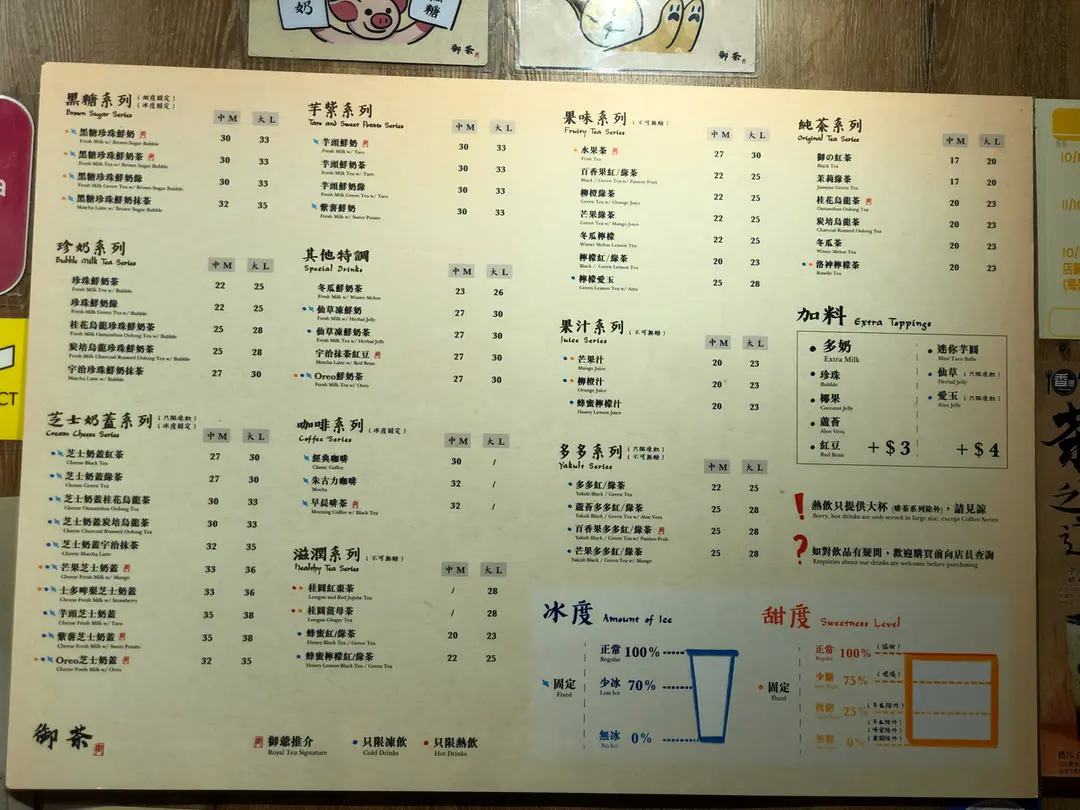 奶
糖
御茶
御茶
黑糖系列 (甜度固定) (冰度固定)
Brown Sugar Series
中 M 大 L
黑糖珍珠鮮奶 30 33
Fresh Milk w/ Brown Sugar Bubble
黑糖珍珠鮮奶茶 30 33
Fresh Milk Tea w/ Brown Sugar Bubble
黑糖珍珠鮮奶綠 30 33
Fresh Milk Green Tea w/ Brown Sugar Bubble
黑糖珍珠鮮奶抹茶 32 35
Matcha Latte w/ Brown Sugar Bubble
珍奶系列
Bubble Milk Tea Series
中 M 大 L
珍珠鮮奶茶 22 25
Fresh Milk Tea w/ Bubble
珍珠鮮奶綠 22 25
Fresh Milk Green Tea w/ Bubble
桂花烏龍珍珠鮮奶茶 25 28
Fresh Milk Osmanthus Oolong Tea w/ Bubble
炭培烏龍珍珠鮮奶茶 25 28
Fresh Milk Charcoal Roasted Oolong Tea w/ Bubble
宇治珍珠鮮奶抹茶 27 30
Matcha Latte w/ Bubble
芝士奶蓋系列 (只限凍飲) (冰度固定)
Cream Cheese Series
中 M 大 L
芝士奶蓋紅茶 27 30
Cheese Black Tea
芝士奶蓋綠茶 27 30
Cheese Green Tea
芝士奶蓋桂花烏龍茶 30 33
Cheese Osmanthus Oolong Tea
芝士奶蓋炭培烏龍茶 30 33
Cheese Charcoal Roasted Oolong Tea
芝士奶蓋宇治抹茶 32 35
Cheese Matcha Latte
芒果芝士奶蓋 33 36
Cheese Fresh Milk w/ Mango
士多啤梨芝士奶蓋 33 36
Cheese Fresh Milk w/ Strawberry
芋頭芝士奶蓋 35 38
Cheese Fresh Milk w/ Taro
紫薯芝士奶蓋 35 38
Cheese Fresh Milk w/ Sweet Potato
Oreo芝士奶蓋 32 35
Cheese Fresh Milk w/ Oreo
芋紫系列
Taro and Sweet Potato Series
中 M 大 L
芋頭鮮奶 30 33
Fresh Milk w/ Taro
芋頭鮮奶茶 30 33
Fresh Milk Tea w/ Taro
芋頭鮮奶綠 30 33
Fresh Milk Green Tea w/ Taro
紫薯鮮奶 30 33
Fresh Milk w/ Sweet Potato
其他特調
Special Drinks
中 M 大 L
冬瓜鮮奶茶 23 26
Fresh Milk w/ Winter Melon
仙草凍鮮奶 27 30
Fresh Milk w/ Herbal Jelly
仙草凍鮮奶茶 27 30
Fresh Milk Tea w/ Herbal Jelly
宇治抹茶紅豆 27 30
Matcha Latte w/ Red Bean
Oreo鮮奶茶 27 30
Fresh Milk Tea w/ Oreo
咖啡系列 (冰度固定)
Coffee Series
中 M 大 L
經典咖啡 30 /
Classic Coffee
朱古力咖啡 32 /
Mocha
早晨啡茶 32 /
Morning Coffee w/ Black Tea
滋潤系列 (不可無糖)
Healthy Tea Series
中 M 大 L
桂圓紅棗茶 / 28
Longan and Red Jujube Tea
桂圓薑母茶 / 28
Longan Ginger Tea
蜂蜜紅/綠茶 20 23
Honey Black Tea / Green Tea
蜂蜜檸檬紅/綠茶 22 25
Honey Lemon Black Tea / Green Tea
果味系列 (不可無糖)
Fruity Tea Series
中 M 大 L
水果茶 27 30
Fruit Tea
百香果紅/綠茶 22 25
Black / Green Tea w/ Passion Fruit
柳橙綠茶 22 25
Green Tea w/ Orange Juice
芒果綠茶 22 25
Green Tea w/ Mango Juice
冬瓜檸檬 22 25
Winter Melon Lemon Tea
檸檬紅/綠茶 20 23
Black / Green Lemon Tea
檸檬愛玉 25 28
Green Lemon Tea w/ Aiyu
果汁系列 (不可無糖)
Juice Series
中 M 大 L
芒果汁 20 23
Mango Juice
柳橙汁 20 23
Orange Juice
蜂蜜檸檬汁 20 23
Honey Lemon Juice
多多系列 (只限凍飲) (不可無糖)
Yakult Series
中 M 大 L
多多紅/綠茶 22 25
Yakult Black / Green Tea
蘆薈多多紅/綠茶 25 28
Yakult Black / Green Tea w/ Aloe Vera
百香果多多紅/綠茶 25 28
Yakult Black / Green Tea w/ Passion Fruit
芒果多多紅/綠茶 25 28
Yakult Black / Green Tea w/ Mango
純茶系列
Original Tea Series
中 M 大 L
御の紅茶 17 20
Black Tea
茉莉綠茶 17 20
Jasmine Green Tea
桂花烏龍茶 20 23
Osmanthus Oolong Tea
炭培烏龍茶 20 23
Charcoal Roasted Oolong Tea
冬瓜茶 20 23
Winter Melon Tea
洛神檸檬茶 20 23
Roselle Tea
加料 Extra Toppings
多奶
Extra Milk
珍珠
Bubble
椰果
Coconut Jelly
蘆薈
Aloe Vera
紅豆
Red Bean
+$3
迷你芋圓
Mini Taro Balls
仙草 (只限凍飲)
Herbal Jelly
愛玉 (只限凍飲)
Aiyu Jelly
+$4
! 熱飲只提供大杯 (啡茶系列除外),請見諒
Sorry, hot drinks are only served in large size, except Coffee Series
? 如對飲品有疑問,歡迎購買前向店員查詢
Enquiries about our drinks are welcome before purchasing
冰度 Amount of Ice
固定
Fixed
正常 100%
Regular
少冰 70%
Less Ice
無冰 0%
No Ice
甜度 Sweetness Level
固定
Fixed
正常 100%
Regular
少糖 75%
Less Sugar
微糖 25%
無糖 0%
御茶
御爺推介
Royal Tea Signature
只限凍飲
Cold Drinks
只限熱飲
Hot Drinks
CT
10/
11/1
10/
香
茶
之